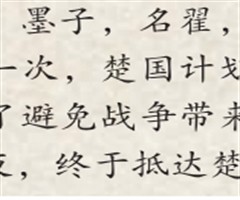 墨子，名翟，
一次，楚国计划
了避免战争带来
夜，终于抵达楚